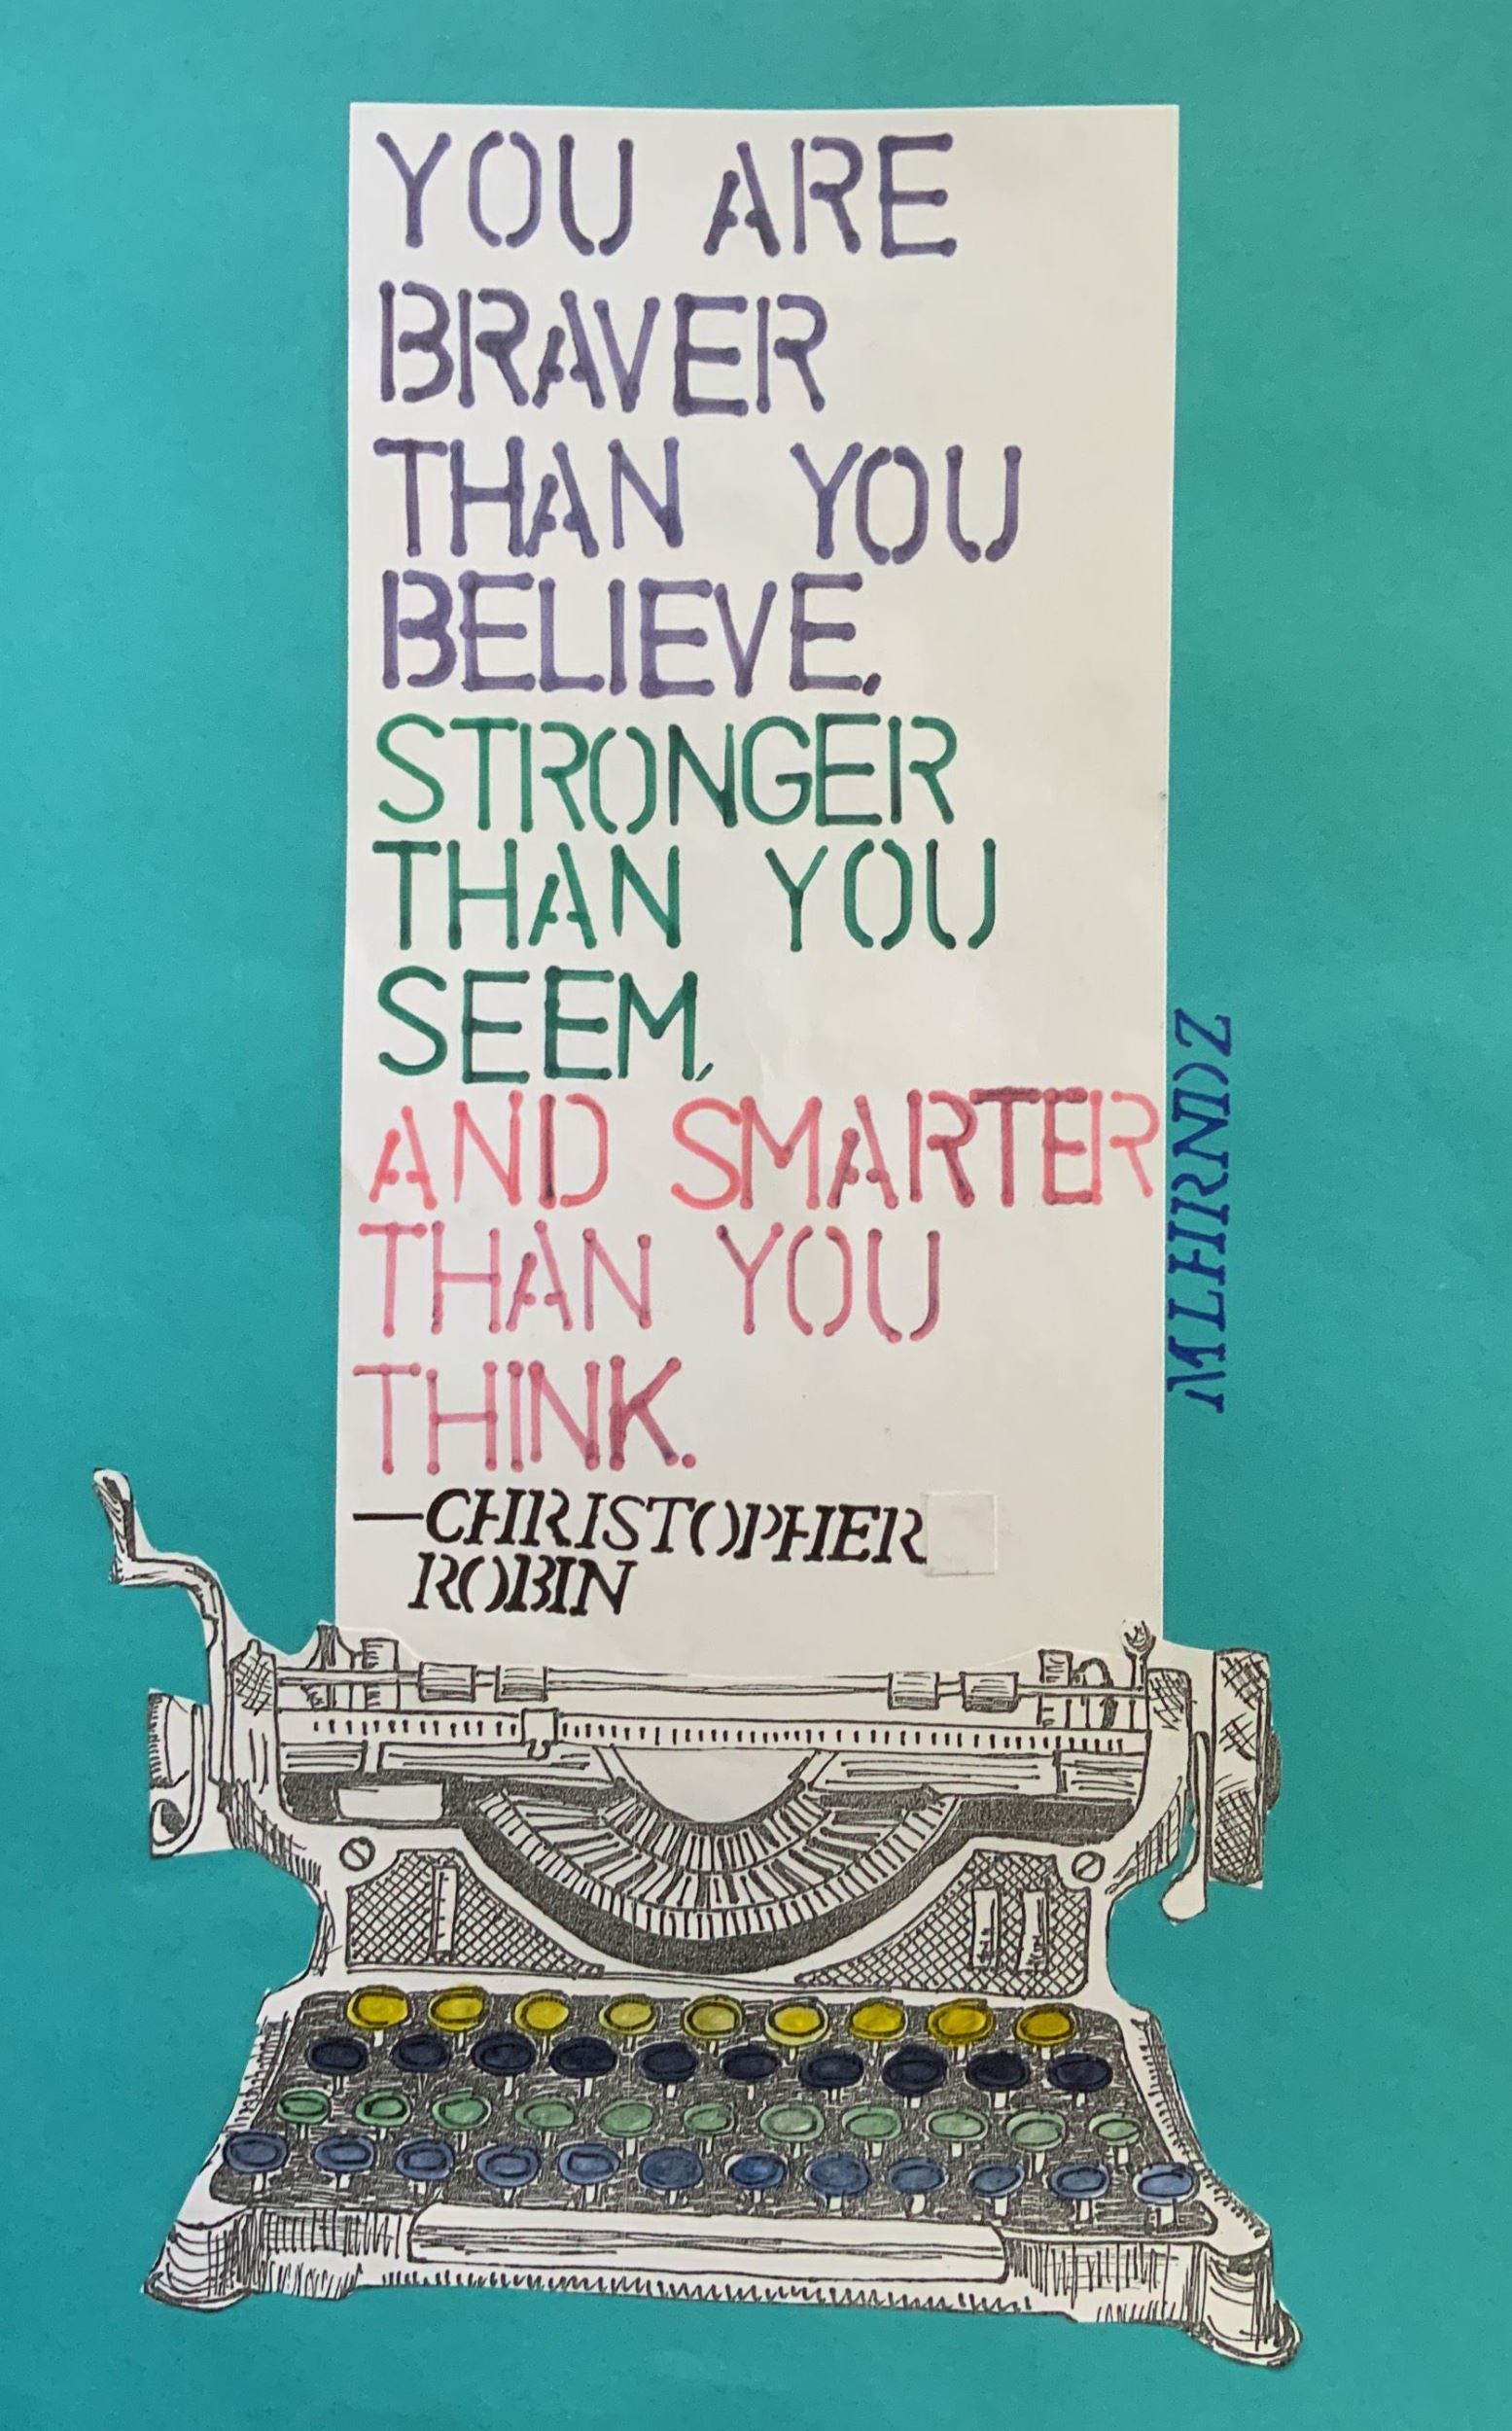 YOU ARE
BRAVER
THAN YOU
BELIEVE,
STRONGER
THAN YOU
SEEM,
AND SMARTER
THAN YOU
THINK.
—CHRISTOPHER
ROBIN
MLHRNDZ